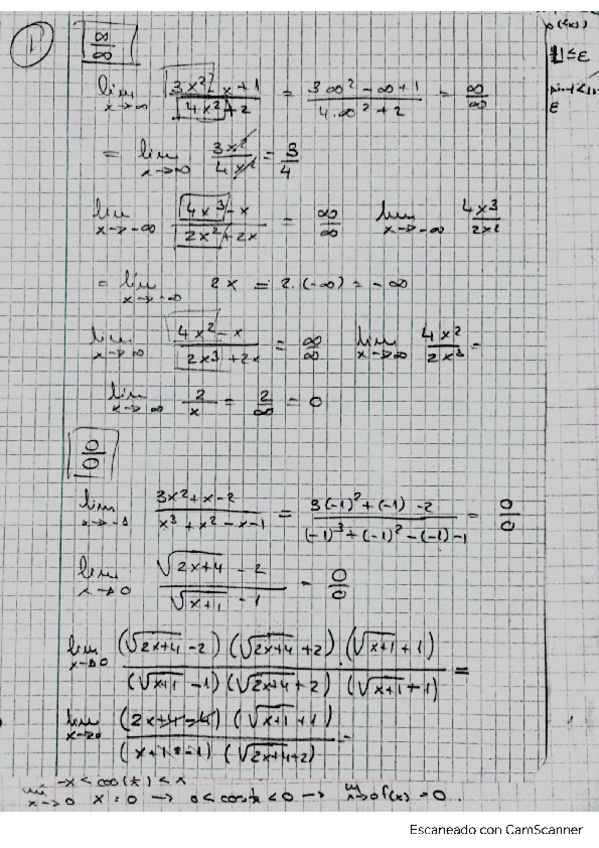 o(f(x))
1) ∞/∞
lim x→∞ (3x² - x + 1)/(4x² + 2) = (3∞² - ∞ + 1)/(4·∞² + 2) = ∞/∞
= lim x→∞ 3x²/4x² = 3/4
lim x→-∞ (4x³ - x)/(2x² + 2x) = ∞/∞ lim x→-∞ 4x³/2x²
= lim x→-∞ 2x = 2·(-∞) = -∞
lim x→∞ (4x² - x)/(2x³ + 2x) = ∞/∞ lim x→∞ 4x²/2x³ =
lim x→∞ 2/x = 2/∞ = 0
0/0
lim x→-1 (3x² + x - 2)/(x³ + x² - x - 1) = (3(-1)² + (-1) - 2)/((-1)³ + (-1)² - (-1) - 1) = 0/0
lim x→0 (√(2x+4) - 2)/(√(x+1) - 1) = 0/0
lim x→0 (√(2x+4) - 2)(√(2x+4) + 2)·(√(x+1) + 1)/((√(x+1) - 1)(√(2x+4) + 2)(√(x+1) + 1)) =
lim x→0 (2x+4-4)(√(x+1) + 1)/((x+1-1)(√(2x+4)+2)) =
-x < cos(1/x) < x
lim x→0 x = 0 → 0 < cos 1/x < 0 → lim x→0 f(x) = 0
Escaneado con CamScanner